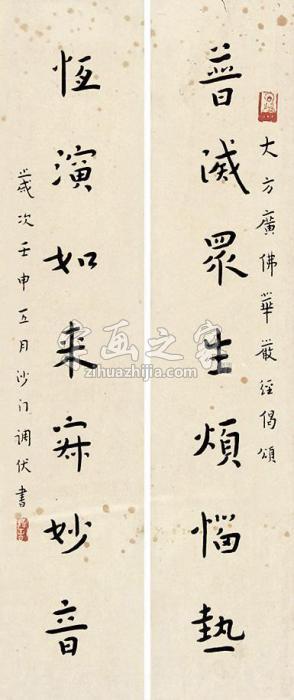 大方廣佛華嚴經偈頌
普滅眾生煩惱熱
恆演如來寂妙音
歲次壬申五月沙門調伏書
字画之家
zihuazhijia.com